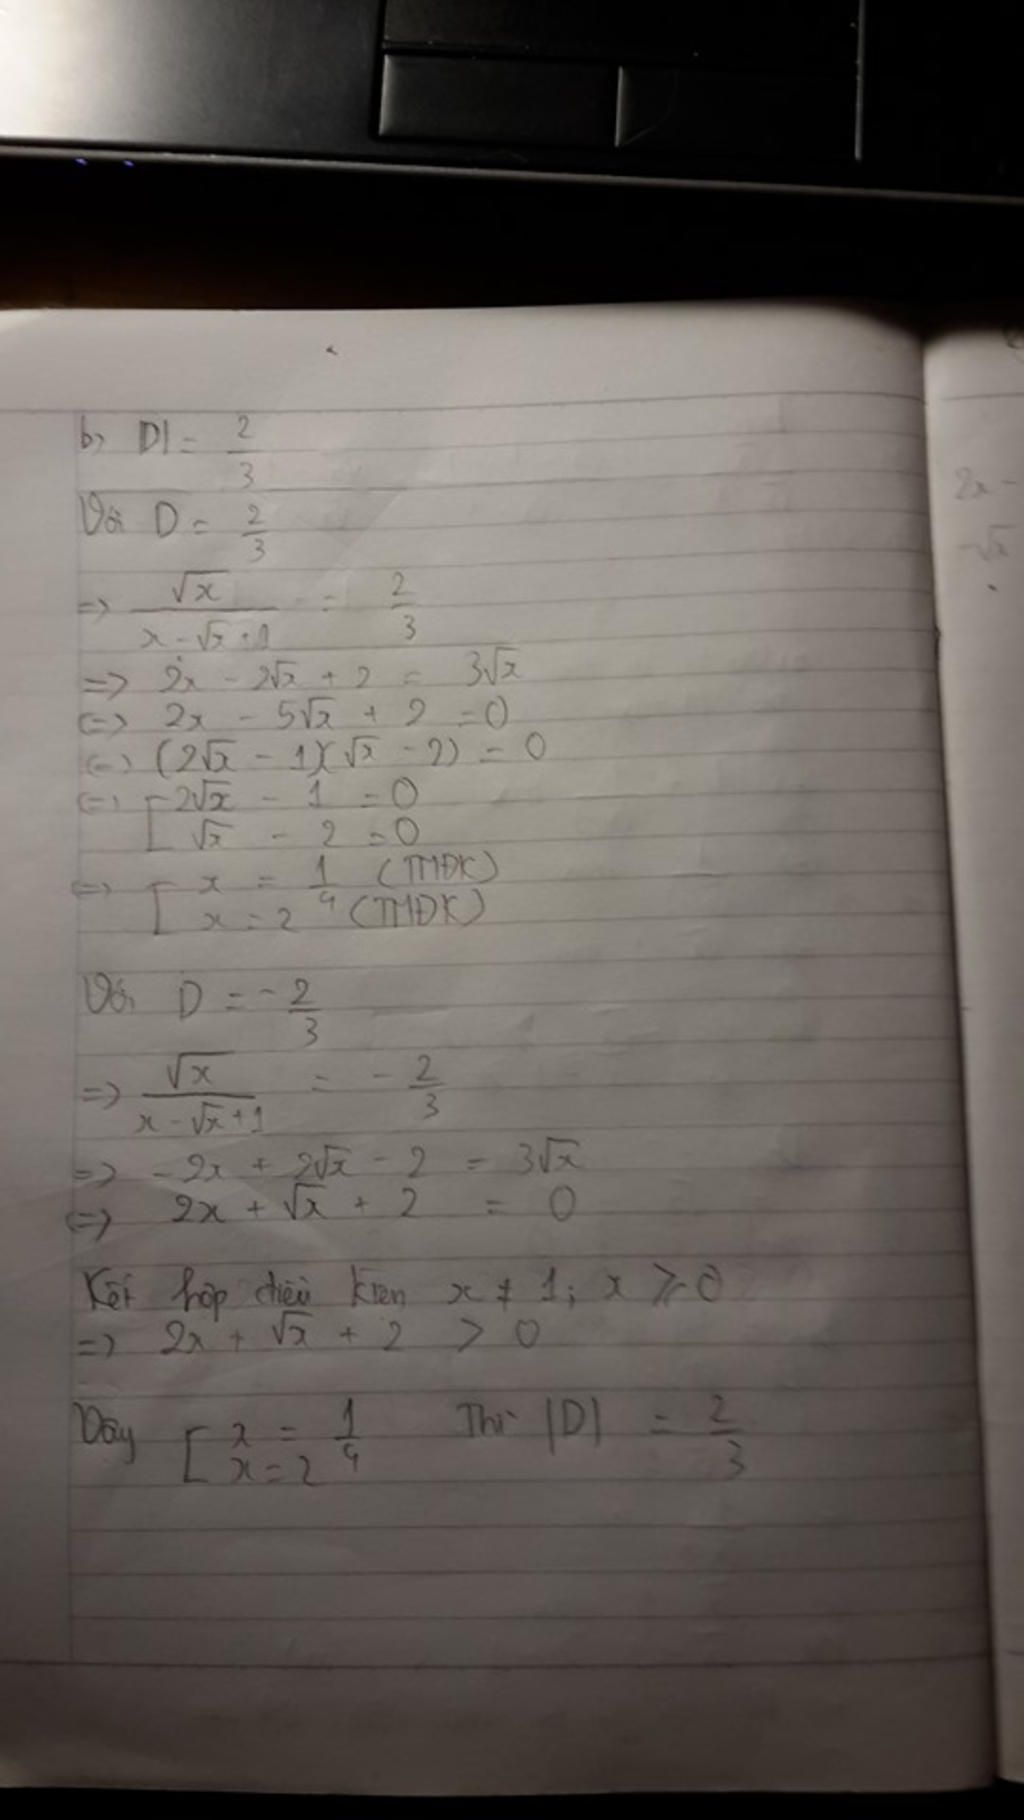 b) |D| = 2/3
Với D = 2/3
=> √x / (x - √x + 1) = 2/3
=> 2x - 2√x + 2 = 3√x
<=> 2x - 5√x + 2 = 0
<=> (2√x - 1)(√x - 2) = 0
<=> [ 2√x - 1 = 0
√x - 2 = 0
<=> [ x = 1/4 (TMĐK)
x = 2 (TMĐK)
Với D = - 2/3
=> √x / (x - √x + 1) = - 2/3
=> - 2x + 2√x - 2 = 3√x
<=> 2x + √x + 2 = 0
Kết hợp điều kiện x ≠ 1; x ≥ 0
=> 2x + √x + 2 > 0
Vậy [ x = 1/4 Thì |D| = 2/3
x = 2
2x -
-√x